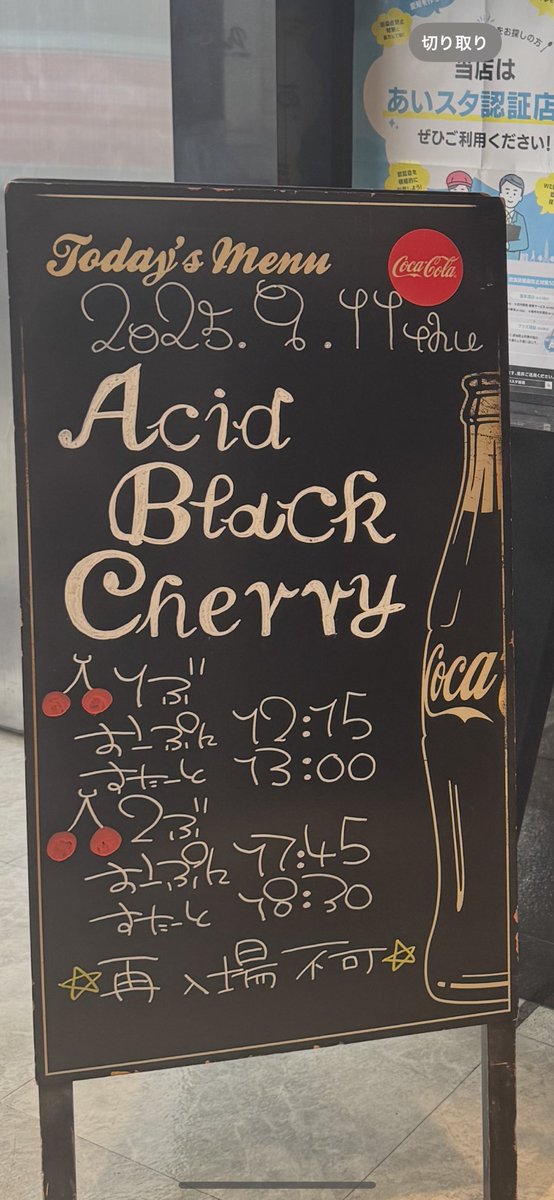 切り取り
をお探しの方
当店は
あいスタ認証店
ぜひご利用ください!
Today's Menu
Coca-Cola
2025.9.11 Thu
Acid
Black
Cherry
1ぶ
おーぷん 12:15
すたーと 13:00
2ぶ
おーぷん 17:45
すたーと 18:30
☆再入場不可☆
Coca